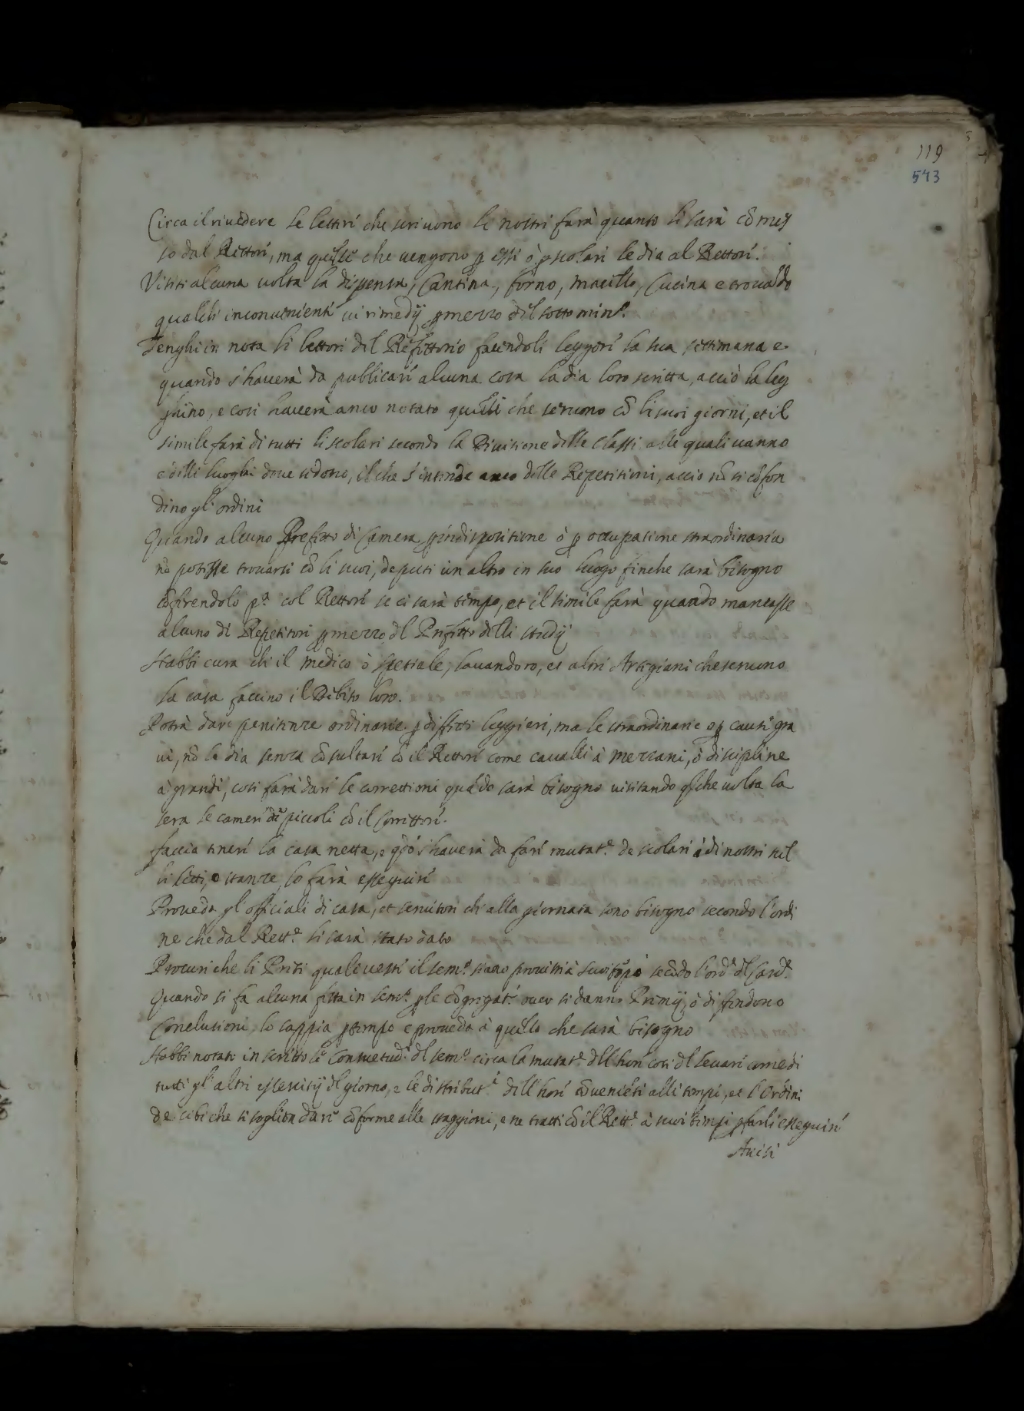 119
543
Circa il riuedere le lettere che scriuono le nostri farà quanto li sarà cõmes
so dal Rettore, ma quelle che uengono p essi ò p scolari le dia al Rettore.
Visiti alcuna uolta la dispensa, Cantina, forno, macello, Cucina e trouãdo
qualchi inconuenienti ui rimedij p mezzo del sottomin.º
Tenghi in nota li lettori del Refittorio facendoli leggere la sua settimana e
quando s'hauerà da publicare alcuna cosa la dia loro scritta, acciò la leg
ghino, e cosi hauerà anco notato quelli che seruono cõ li suoi giorni, et il
simile farà di tutti li scolari secondo la Diuisione delle classi alle quali uanno
e delli luoghi doue sedono, il che s'intende anco delle Repetitioni, acciò nõ si cõfon
dino gl'ordini
Quando alcuno Prefetto di Camera p indispositione ò p occupatione straordinaria
nõ potesse trouarsi cõ li suoi, deputi un altro in suo luogo finche sarà bisogno
cõferendolo pª col Rettore se ci sarà tempo, et il simile farà quando mancasse
alcuno de Repetitori p mezzo del Prefetto delli studij
Habbi cura che il medico ò spetiale, lauandoro, et altri Artegiani che seruono
la casa faccino il Debito loro.
Potrà dare penitenze ordinarie p difetti leggieri, ma le straordinarie e p cause gra
ui, nõ le dia senza cõsultare cõ il Rettore come caualli à mezzani, ò discipline
à grandi, cosi farà dare le correttioni quãdo sarà bisogno uisitando qlche uolta la
sera le camere de piccoli cõ il Correttore.
Faccia tenere la casa netta, e qdo s'hauerà da fare mutatº de scolari ò di nostri nel
li letti, o stanze, lo farà esseguire
Proueda gl'officiali di casa, et seruitori ch'alla giornata sono bisogno secondo l'ordi
ne che dal Rettº li sarà stato dato
Procuri che li Preti qualeuesti il semº siano prouisti à suo tẽpo secõdo l'ordº del Cardº
Quando si fa alcuna festa in semº p le cõgregatº ouero si danno Premij, ò difendono
Conclusioni, lo sappia p tempo e proueda à quello che sarà bisogno
Habbi notato in scritto le consuetudº del semº circa la mutatº dell'hore cosi del leuare come di
tutti gl'altri essercitij del giorno, e le distributº dell'hore cõuenieti alli tempi, et l'Ordini
de cibi che si soglion dare cõforme alle staggioni, e ne tratti cõ il Rettº à suoi tempi p farli esseguire
Auisi